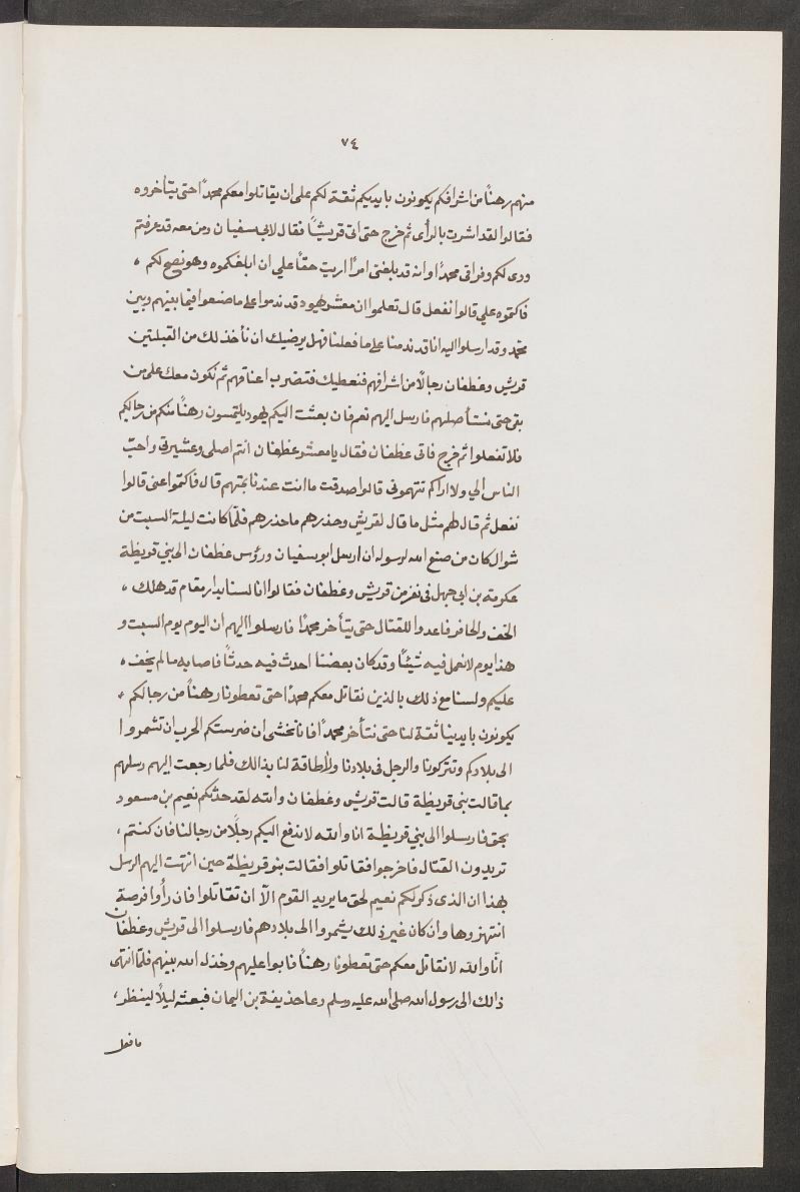 ٧٤
منهم رهنًا من اشرافكم يكونون بايديكم ثقة لكم على ان يقاتلوا معكم محمدًا حتى يتأخروه
فقالوا لقد اشرت بالرأى ثم خرج حتى اتى قريشًا فقال لابى سفيان ومن معه قد عرفتم
ودى لكم وفراقى محمدًا وانه قد بلغنى امرًا اريت حقًا على ان ابلغكموه وهو نصح لكم ،
فاكتموه على قالوا نفعل قال تعلموا ان معشر يهود قد ندموا على ما صنعوا فيما بينهم وبين
محمد وقد ارسلوا اليه انا قد ندمنا على ما فعلنا فهل يرضيك ان نأخذ لك من القبلتين
قريش وغطفان رجالًا من اشرافهم فنعطيك فتضرب اعناقهم ثم نكون معك على من
بقى حتى نستأصلهم فارسل اليهم نعم فان بعثت اليكم يهود يلتمسون رهنًا منكم من رجالكم
فلا تفعلوا ثم خرج فاتى غطفان فقال يا معشر غطفان انتم اصلى وعشيرتى واحبّ
الناس الي ولا اراكم تتهمونى قالوا صدقت ما انت عندنا بمتهم قال فاكتموا عنى قالوا
نفعل ثم قال لهم مثل ما قال لقريش وحذرهم ما حذرهم فلمّا كانت ليلة السبت من
شوال كان من صنع الله لرسوله ان ارسل ابو سفيان ورؤس غطفان الى بني قريظة
عكرمة بن ابى جهل فى نفر من قريش وغطفان فقالوا انا لسنا بدار مقام قد هلك ،
الخف والحافر فاعدوا للقتال حتى يتأخر محمدًا فارسلوا اليهم ان اليوم يوم السبت و
هذا يوم لا نعمل فيه شيئًا وقد كان بعضنا احدث فيه حدثًا فاصابه ما لم يخف ،
عليكم ولسنا مع ذلك بالذين نقاتل معكم محمدًا حتى تعطونا رهنًا من رجالكم ،
يكونون بايدينا ثقة لنا حتى نتأخر محمدًا فانا نخشى ان ضرستكم الحرب ان تشمروا
الى بلادكم وتتركونا والرجل فى بلادنا ولا طاقة لنا بذالك فلما رجعت اليهم رسلهم
بما قالت بنى قريظة قالت قريش وغطفان والله لقد حدثكم نعيم بن مسعود
بحق فارسلوا الى بني قريظة انا والله لا ندفع اليكم رجلًا من رجالنا فان كنتم ،
تريدون القتال فاخرجوا فقاتلوا فقالت بنو قريظة حين انتهت اليهم الرسل
بهذا ان الذى ذكر لكم نعيم لحق ما يريد القوم الّا ان تقاتلوا فان رأوا فرصة
انتهزوها وان كان غير ذلك يشمروا الى بلادهم فارسلوا الى قريش وغطفان
انّا والله لا نقاتل معكم حتى تعطونا رهنًا فابوا عليهم وخذل الله بينهم فلمّا انتهى
ذالك الى رسول الله صلى الله عليه وسلم دعا حذيفة بن اليمان فبعثه ليلًا لينظر،
ما فعل